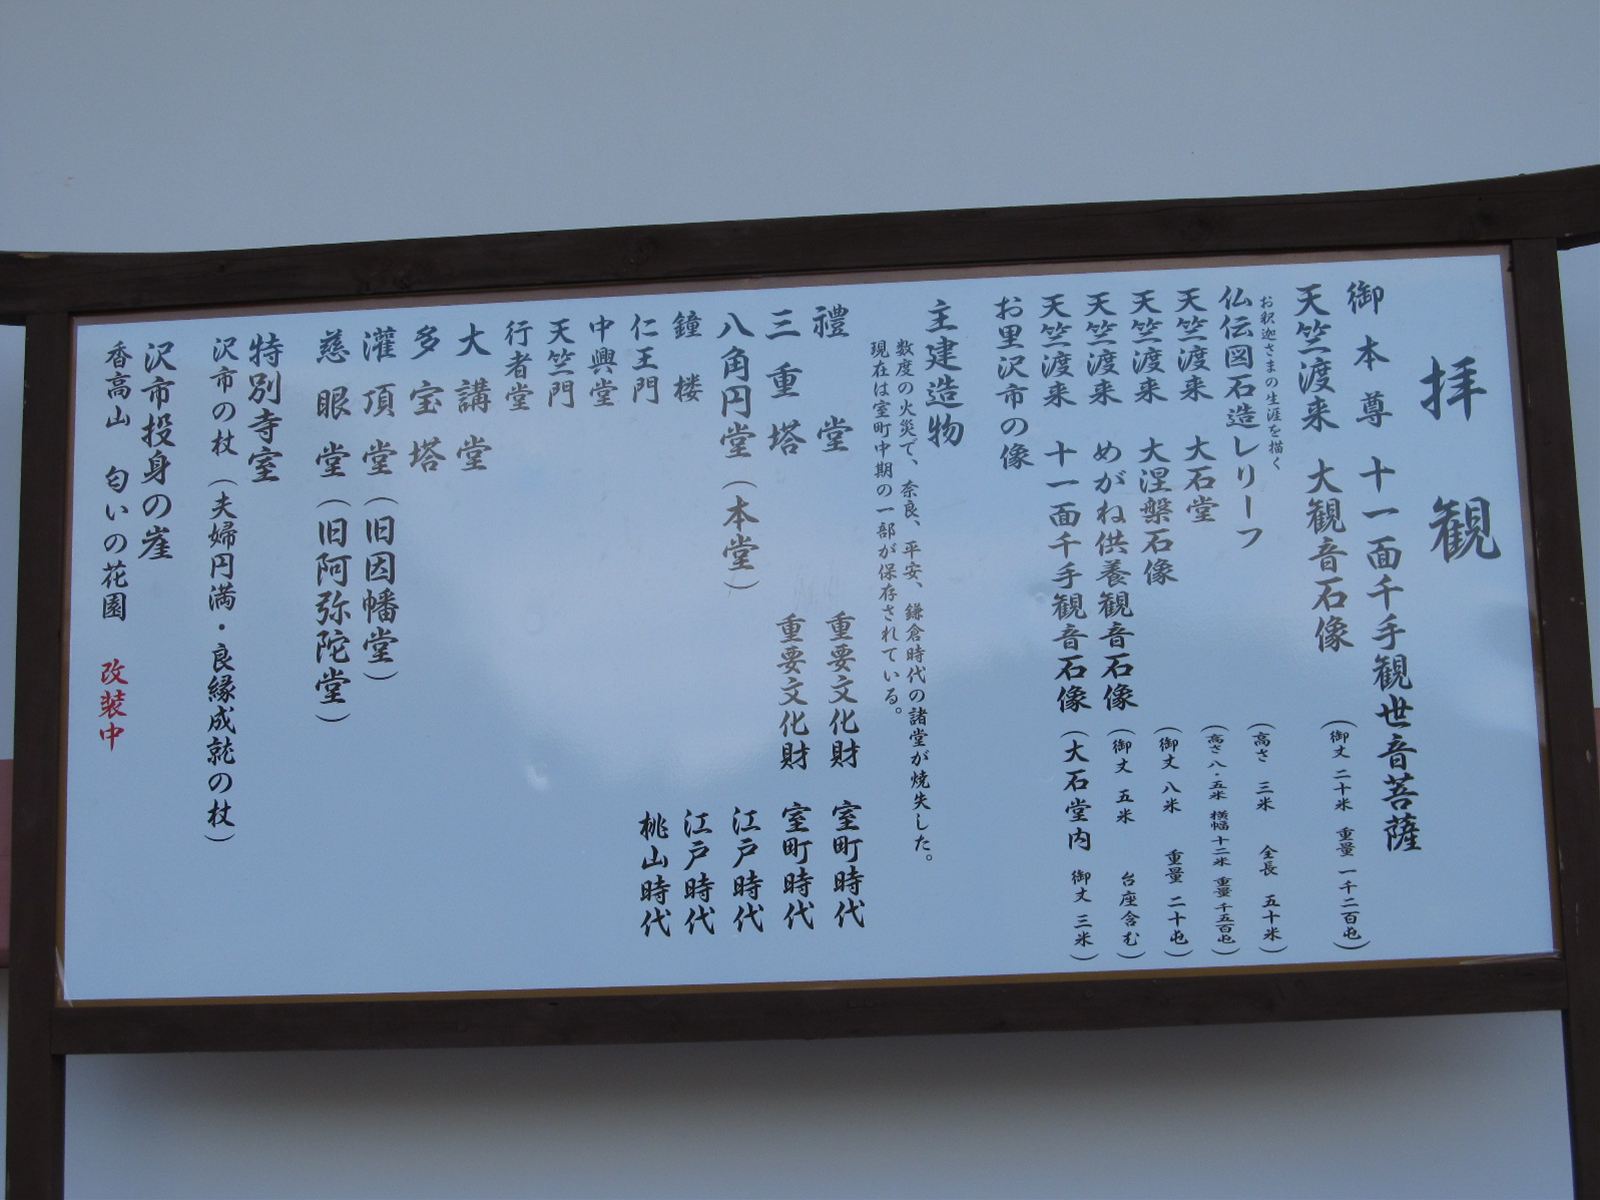 拝観
御本尊 十一面千手観世音菩薩
天竺渡来 大観音石像 (御丈 二十米 重量 一千二百屯)
お釈迦さまの生涯を描く
仏伝図石造レリーフ (高さ 三米 全長 五十米)
天竺渡来 大石堂 (高さ 八・五米 横幅 十二米 重量 千五百屯)
天竺渡来 大涅槃石像 (御丈 八米 重量 二十屯)
天竺渡来 めがね供養観音石像 (御丈 五米 台座含む)
天竺渡来 十一面千手観音石像 (大石堂内 御丈 三米)
お里沢市の像
主建造物
数度の火災で、奈良、平安、鎌倉時代の諸堂が焼失した。
現在は室町中期の一部が保存されている。
禮堂 重要文化財 室町時代
三重塔 重要文化財 室町時代
八角円堂(本堂) 江戸時代
鐘楼 江戸時代
仁王門 桃山時代
中興堂
天竺門
行者堂
大講堂
多宝塔
灌頂堂(旧因幡堂)
慈眼堂(旧阿弥陀堂)
特別寺室
沢市の杖(夫婦円満・良縁成就の杖)
沢市投身の崖
香高山 匂いの花園 改装中